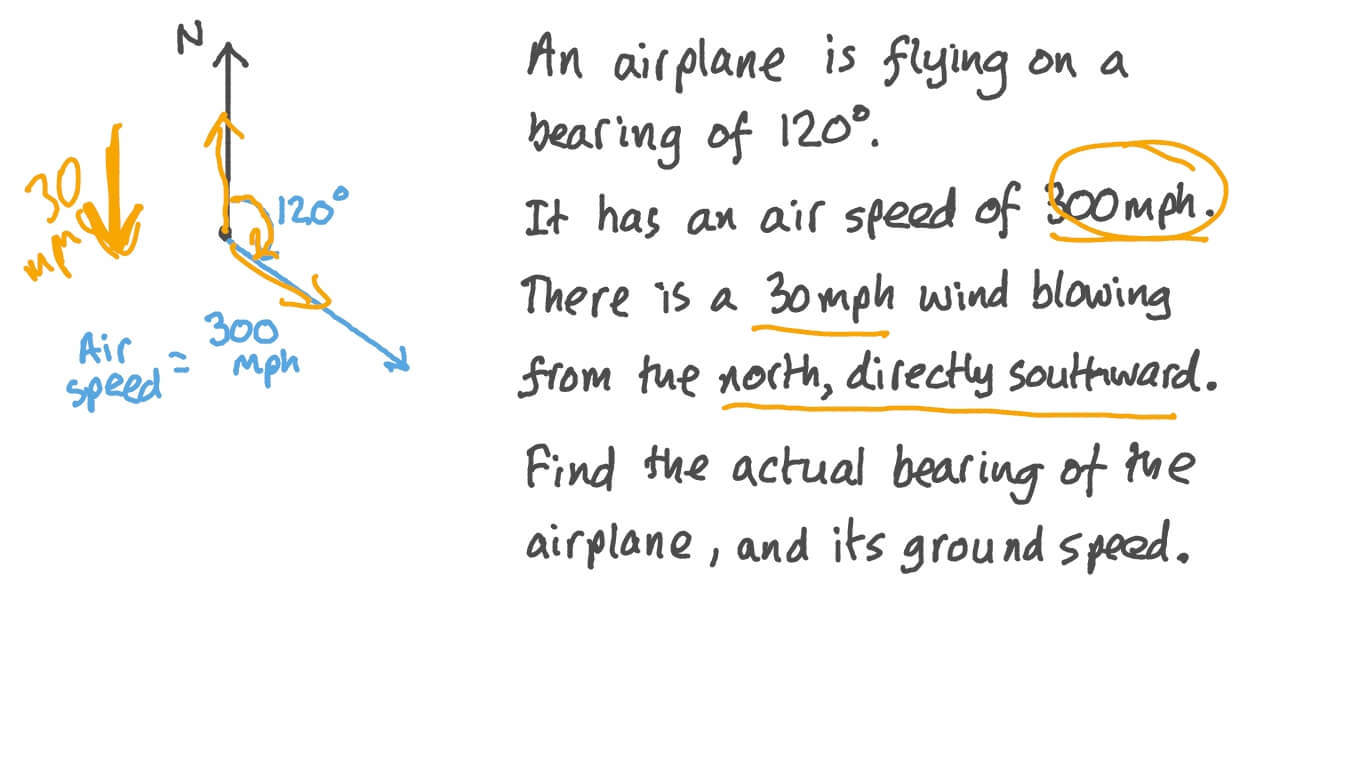 N
30
mph
120°
Air
speed
=
300
mph
An airplane is flying on a
bearing of 120°.
It has an air speed of 300mph.
There is a 30mph wind blowing
from the north, directly southward.
Find the actual bearing of the
airplane, and its ground speed.